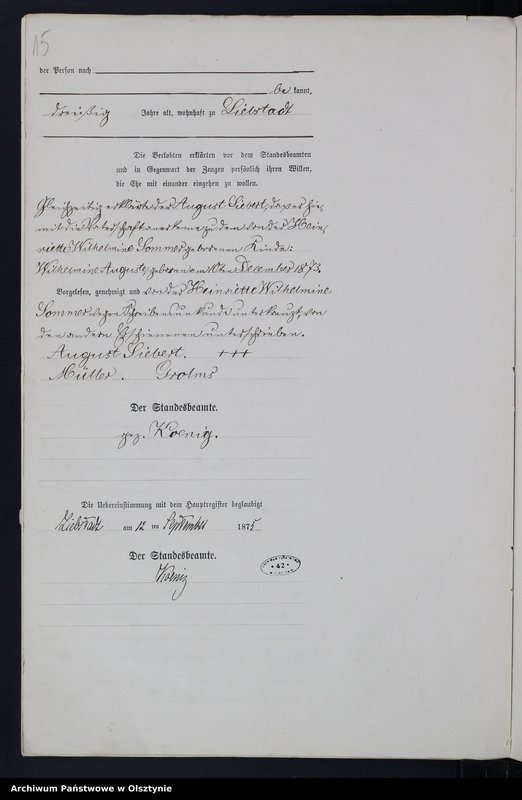 15
der Person nach
be kannt,
dreißig Jahre alt, wohnhaft zu Liebstadt
Die Verlobten erklärten vor dem Standesbeamten
und in Gegenwart der Zeugen persönlich ihren Willen,
die Ehe mit einander eingehen zu wollen.
Gleichzeitig erklärte der August Siebert, daß er hie-
mit die Vaterschaft anerkenne zu dem von der Hein-
riette Wilhelmine Sommer geborenen Kinde:
Wilhelmine Auguste, geboren am ten Dezember 1873.
Vorgelesen, genehmigt und von der Heinriette Wilhelmine
Sommer wegen Schreibensunkunde unterkreuzt, von
den andern Erschienenen unterschrieben.
August Siebert. +++
Müller. Grolms
Der Standesbeamte.
gez. Koenig.
Die Uebereinstimmung mit dem Hauptregister beglaubigt
Liebstadt am 12 ten September 1875
Der Standesbeamte.
Koenig
42
Archiwum Państwowe w Olsztynie